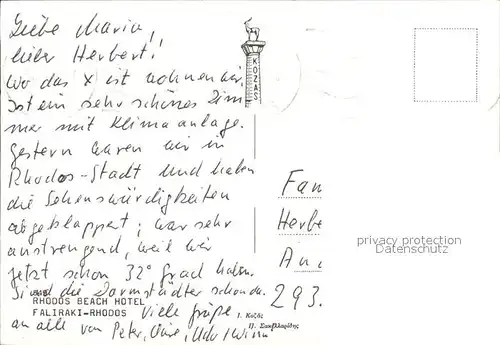 Liebe Maria,
lieber Herbert!
Wo das X ist wohnen wir,
Ist ein sehr schönes Zim
mer mit Klimaanlage.
Gestern waren wir in
Rhodos-Stadt und haben
die Sehenswürdigkeiten
abgeklappert, war sehr
anstrengend, weil wir
jetzt schon 32° Grad haben.
Sind die Darmstädter schon da.
RHODOS BEACH HOTEL
FALIRAKI-RHODOS
Viele Grüße
an alle von Peter,
KOZAS
Fam
Herbe
An
293.
privacy protection
Datenschutz
Ι. Κοζάς
Π. Σακελλαρίδης